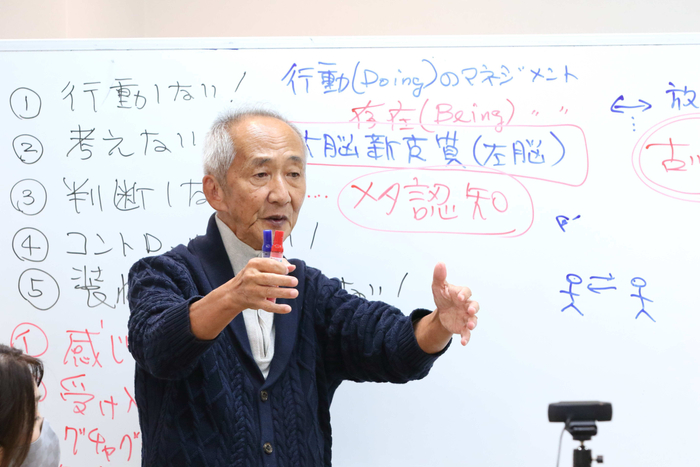 ① 行動しない!
② 考えない
③ 判断しな
④ コントロ !
⑤ 装 ない!
① 感じ
受け入
グチャグ
行動(Doing)のマネジメント
存在(Being) 〃 〃
大脳新皮質(左脳)
メタ認知
↔ 放
古